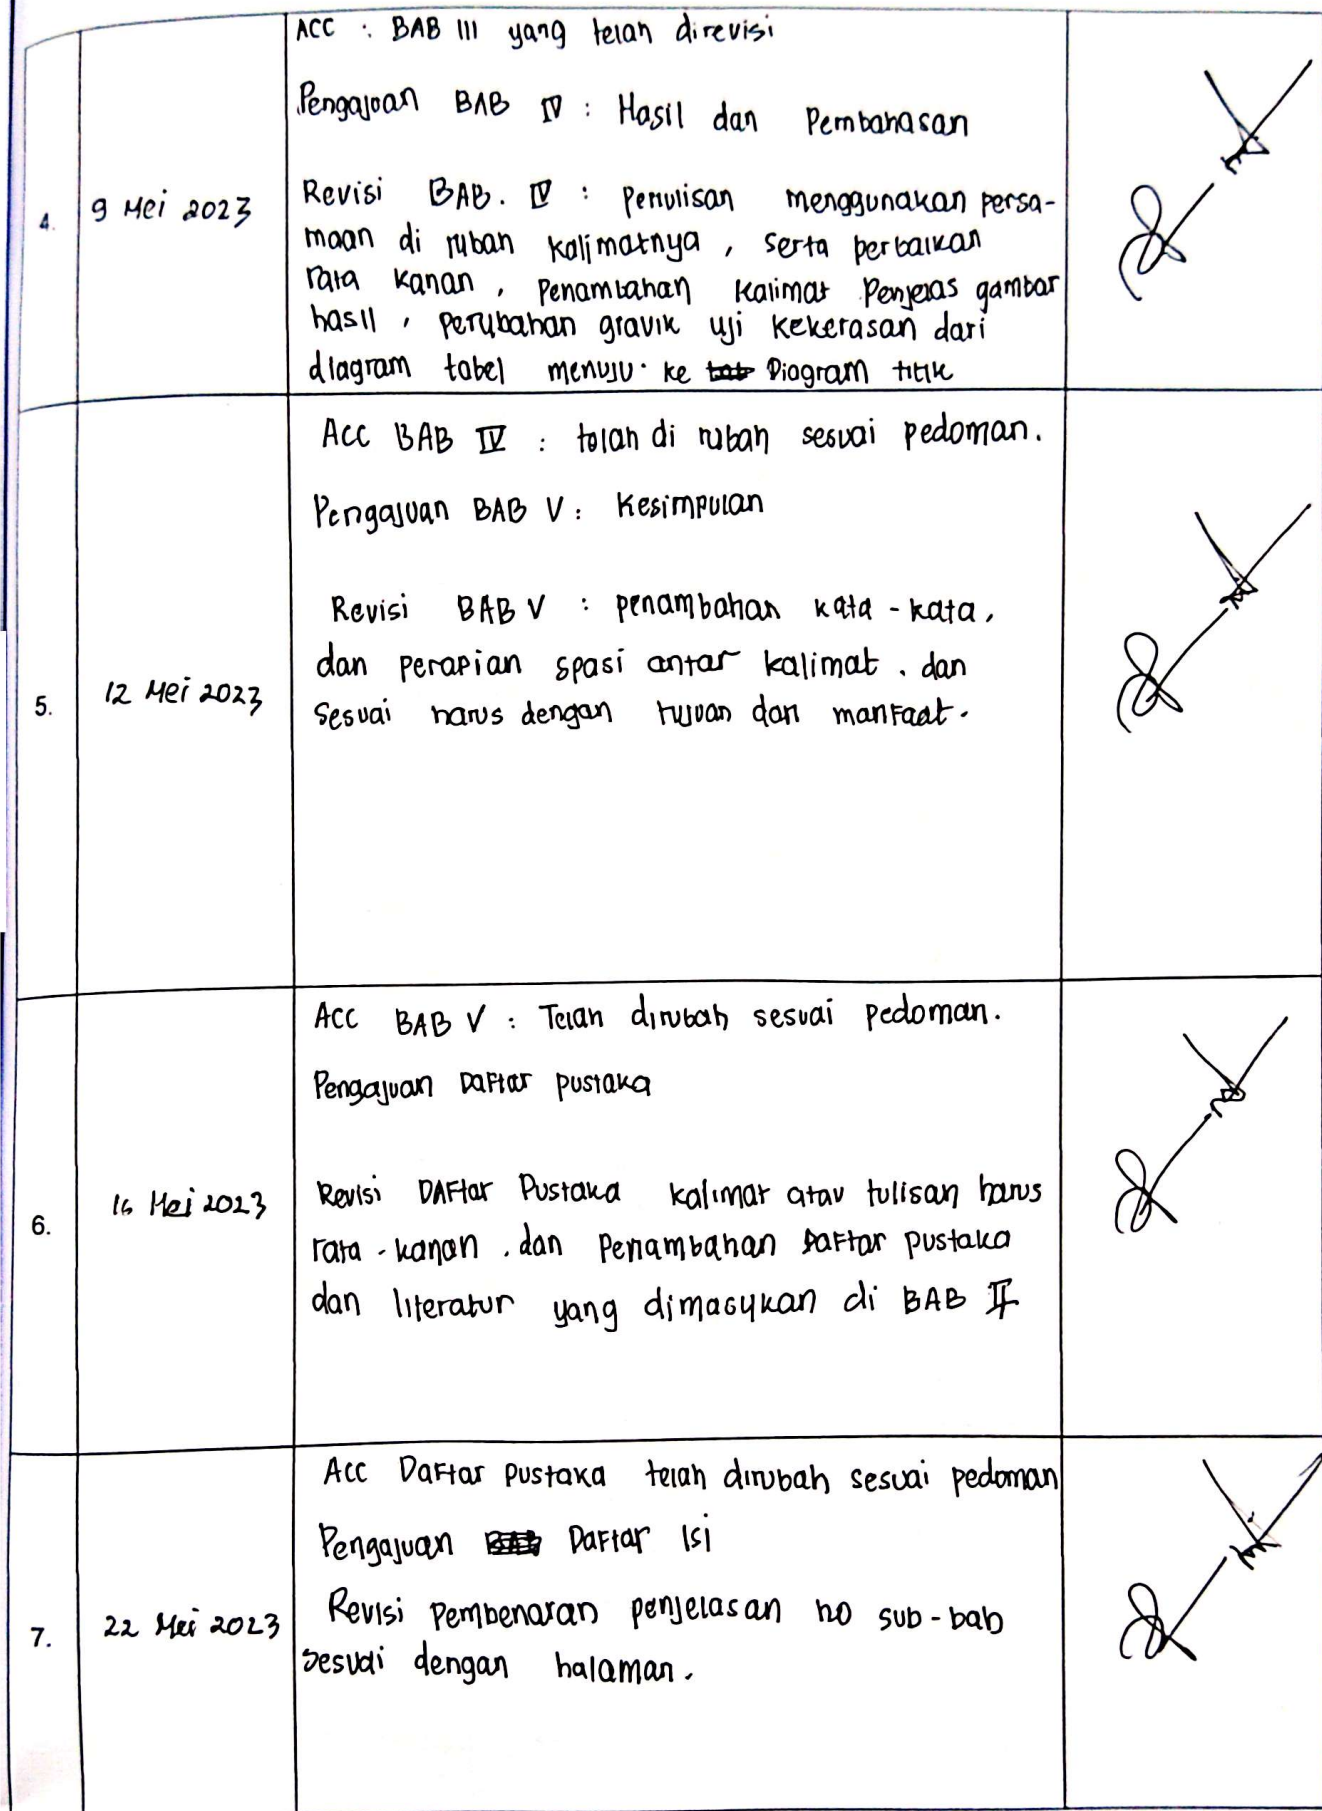 ACC : BAB III yang telah direvisi
Pengajuan BAB IV : Hasil dan Pembahasan
4.
9 Mei 2023
Revisi BAB. IV : Penulisan menggunakan persa-
maan di rubah kalimatnya, serta perbaikan
rata kanan, Penambahan kalimat Penjelas gambar
hasil, perubahan gravik uji kekerasan dari
diagram tabel menuju ke tab Diagram titik
Acc BAB IV : telah di rubah sesuai pedoman.
Pengajuan BAB V : Kesimpulan
5.
12 Mei 2023
Revisi BAB V : penambahan kata - kata,
dan perapian spasi antar kalimat. dan
Sesuai harus dengan tujuan dan manfaat.
Acc BAB V : Telah dirubah sesuai pedoman.
Pengajuan Daftar pustaka
6.
16 Mei 2023
Revisi DAFtar Pustaka kalimat atau tulisan harus
rata - kanan, dan Penambahan Daftar pustaka
dan literatur yang dimasukan di BAB II
Acc Daftar pustaka telah dirubah sesuai pedoman
Pengajuan BAB Daftar Isi
7.
22 Mei 2023
Revisi Pembenaran penjelasan no sub-bab
sesuai dengan halaman.